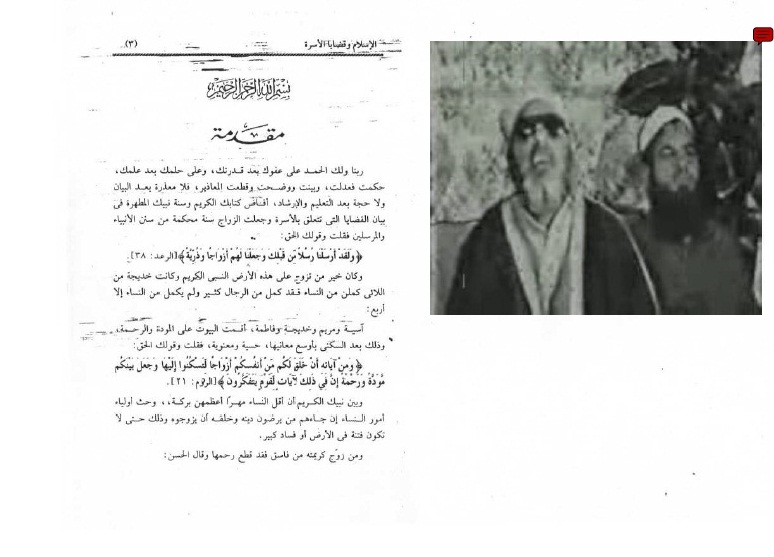 الإسلام وقضايا الأسرة
(٣)
بسم الله الرحمن الرحيم
مقدمة
ربنا ولك الحمد على عفوك بعد قدرتك، وعلى حلمك بعد علمك،
حكمت فعدلت، وبينت ووضحت وقطعت المعاذير، فلا معذرة بعد البيان
ولا حجة بعد التعليم والإرشاد، أفاض كتابك الكريم وسنة نبيك المطهرة فى
بيان القضايا التى تتعلق بالأسرة وجعلت الزواج سنة محكمة من سنن الأنبياء
والمرسلين فقلت وقولك الحق:
﴿ وَلَقَدْ أَرْسَلْنَا رُسُلاً مِّن قَبْلِكَ وَجَعَلْنَا لَهُمْ أَزْوَاجًا وَذُرِّيَّةً ﴾ [الرعد: ٣٨].
وكان خير من تزوج على هذه الأرض النبى الكريم وكانت خديجة من
اللائى كملن من النساء فقد كمل من الرجال كثير ولم يكمل من النساء إلا
أربع:
آسية ومريم وخديجة وفاطمة، أقمت البيوت على المودة والرحمة،
وذلك بعد السكنى بأوسع معانيها، حسية ومعنوية، فقلت وقولك الحق:
﴿ وَمِنْ آيَاتِهِ أَنْ خَلَقَ لَكُم مِّنْ أَنفُسِكُمْ أَزْوَاجًا لِّتَسْكُنُوا إِلَيْهَا وَجَعَلَ بَيْنَكُم
مَّوَدَّةً وَرَحْمَةً إِنَّ فِي ذَلِكَ لآيَاتٍ لِّقَوْمٍ يَتَفَكَّرُونَ ﴾ [الروم: ٢١].
وبين نبيك الكريم أن أقل النساء مهرًا أعظمهن بركة،، وحث أولياء
أمور النساء إن جاءهم من يرضون دينه وخلقه أن يزوجوه وذلك حتى لا
تكون فتنة فى الأرض أو فساد كبير.
ومن زوّج كريمته من فاسق فقد قطع رحمها وقال الحسن: